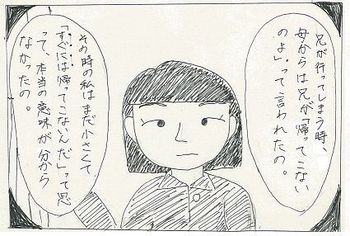 兄が行ってしまう時、
母からは兄が「帰ってこない
のよ」って言われたの。
その時の私はまだ小さくて
「すぐには帰ってこないんだ」って思
って、本当の意味が分から
なかったの。